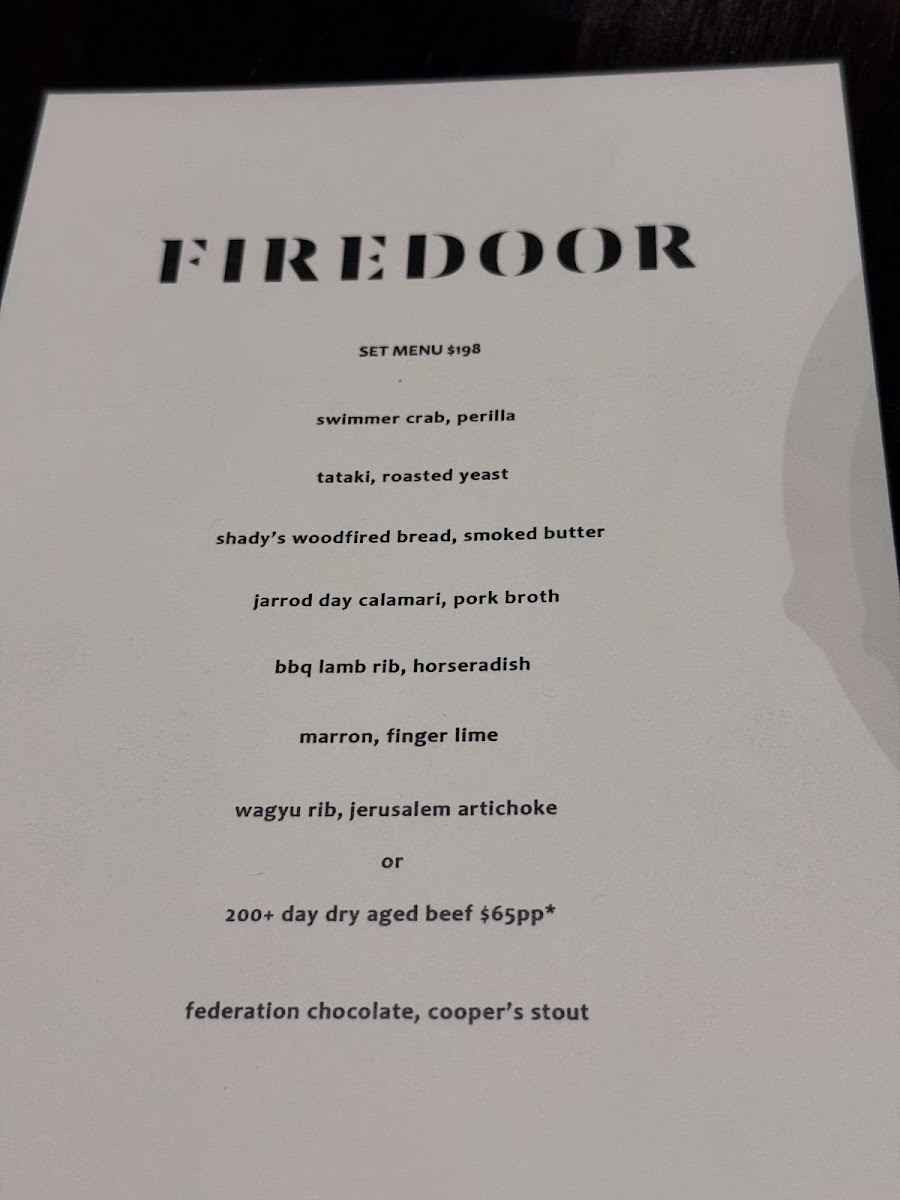 FIREDOOR
SET MENU $198
swimmer crab, perilla
tataki, roasted yeast
shady’s woodfired bread, smoked butter
jarrod day calamari, pork broth
bbq lamb rib, horseradish
marron, finger lime
wagyu rib, jerusalem artichoke
or
200+ day dry aged beef $65pp*
federation chocolate, cooper’s stout